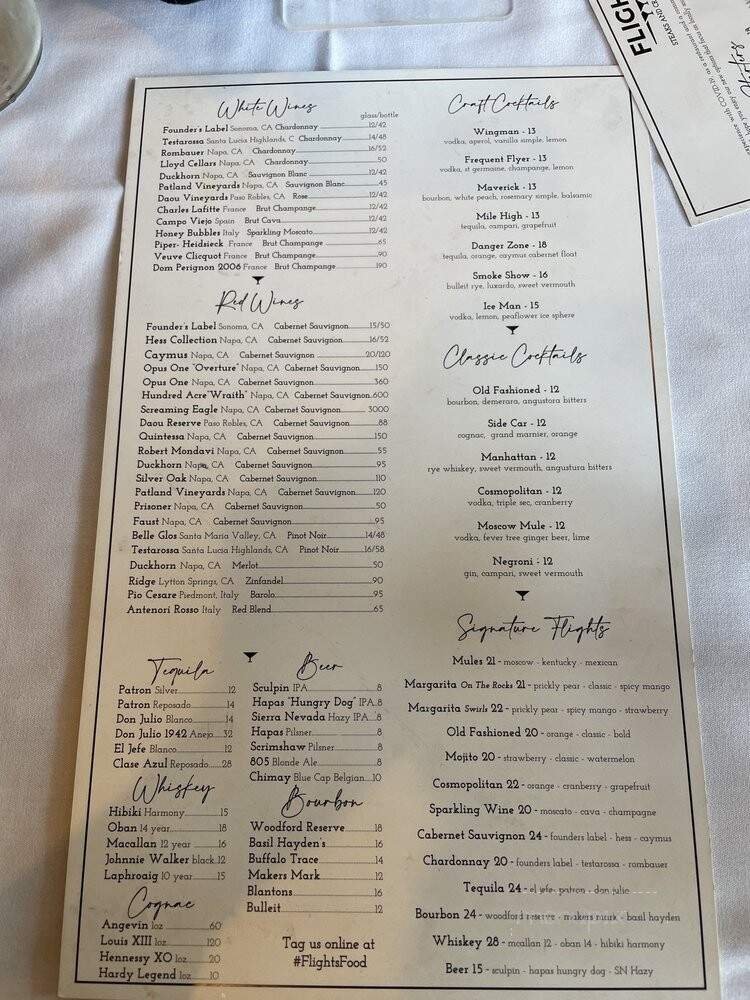 White Wines
glass/bottle
Founder's Label Sonoma, CA Chardonnay 12/42
Testarossa Santa Lucia Highlands, C Chardonnay 14/48
Rombauer Napa, CA Chardonnay 16/52
Lloyd Cellars Napa, CA Chardonnay 50
Duckhorn Napa, CA Sauvignon Blanc 12/42
Patland Vineyards Napa, CA Sauvignon Blanc 45
Daou Vineyards Paso Robles, CA Rose 12/42
Charles Lafitte France Brut Champange 12/42
Campo Viejo Spain Brut Cava 12/42
Honey Bubbles Italy Sparkling Moscato 12/42
Piper- Heidsieck France Brut Champange 65
Veuve Clicquot France Brut Champange 90
Dom Perignon 2006 France Brut Champange 190
Red Wines
Founder's Label Sonoma, CA Cabernet Sauvignon 15/50
Hess Collection Napa, CA Cabernet Sauvignon 16/52
Caymus Napa, CA Cabernet Sauvignon 20/120
Opus One "Overture" Napa, CA Cabernet Sauvignon 150
Opus One Napa, CA Cabernet Sauvignon 360
Hundred Acre"Wraith" Napa, CA Cabernet Sauvignon 600
Screaming Eagle Napa, CA Cabernet Sauvignon 3000
Daou Reserve Paso Robles, CA Cabernet Sauvignon 88
Quintessa Napa, CA Cabernet Sauvignon 150
Robert Mondavi Napa, CA Cabernet Sauvignon 55
Duckhorn Napa, CA Cabernet Sauvignon 95
Silver Oak Napa, CA Cabernet Sauvignon 110
Patland Vineyards Napa, CA Cabernet Sauvignon 120
Prisoner Napa, CA Cabernet Sauvignon 50
Faust Napa, CA Cabernet Sauvignon 95
Belle Glos Santa Maria Valley, CA Pinot Noir 14/48
Testarossa Santa Lucia Highlands, CA Pinot Noir 16/58
Duckhorn Napa, CA Merlot 50
Ridge Lytton Springs, CA Zinfandel 90
Pio Cesare Piedmont, Italy Barolo 95
Antenori Rosso Italy Red Blend 65
Tequila
Patron Silver 12
Patron Reposado 14
Don Julio Blanco 14
Don Julio 1942 Anejo 32
El Jefe Blanco 12
Clase Azul Reposado 28
Whiskey
Hibiki Harmony 15
Oban 14 year 18
Macallan 12 year 16
Johnnie Walker black 12
Laphroaig 10 year 15
Cognac
Angevin 1oz 60
Louis XIII 1oz 120
Hennessy XO 1oz 20
Hardy Legend 1oz 10
Beer
Sculpin IPA 8
Hapas "Hungry Dog" IPA 8
Sierra Nevada Hazy IPA 8
Hapas Pilsner 8
Scrimshaw Pilsner 8
805 Blonde Ale 8
Chimay Blue Cap Belgian 10
Bourbon
Woodford Reserve 18
Basil Hayden's 16
Buffalo Trace 14
Makers Mark 12
Blantons 16
Bulleit 12
Tag us online at
#FlightsFood
Craft Cocktails
Wingman - 13
vodka, aperol, vanilla simple, lemon
Frequent Flyer - 13
vodka, st germaine, champange, lemon
Maverick - 13
bourbon, white peach, rosemary simple, balsamic
Mile High - 13
tequila, campari, grapefruit
Danger Zone - 18
tequila, orange, caymus cabernet float
Smoke Show - 16
bulleit rye, luxardo, sweet vermouth
Ice Man - 15
vodka, lemon, peaflower ice sphere
Classic Cocktails
Old Fashioned - 12
bourbon, demerara, angustora bitters
Side Car - 12
cognac, grand marnier, orange
Manhattan - 12
rye whiskey, sweet vermouth, angustura bitters
Cosmopolitan - 12
vodka, triple sec, cranberry
Moscow Mule - 12
vodka, fever tree ginger beer, lime
Negroni - 12
gin, campari, sweet vermouth
Signature Flights
Mules 21 - moscow - kentucky - mexican
Margarita On The Rocks 21 - prickly pear - classic - spicy mango
Margarita Swirls 22 - prickly pear - spicy mango - strawberry
Old Fashioned 20 - orange - classic - bold
Mojito 20 - strawberry - classic - watermelon
Cosmopolitan 22 - orange - cranberry - grapefruit
Sparkling Wine 20 - moscato - cava - champagne
Cabernet Sauvignon 24 - founders label - hess - caymus
Chardonnay 20 - founders label - testarossa - rombauer
Tequila 24 - el jefe, patron - don julio
Bourbon 24 - woodford reserve - makers mark - basil hayden
Whiskey 28 - mcallan 12 - oban 14 - hibiki harmony
Beer 15 - sculpin - hapas hungry dog - SN Hazy
FLIGH
STEAKS AND